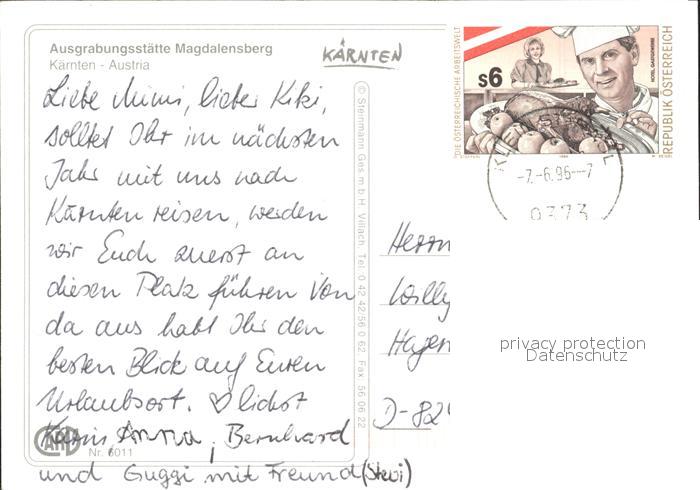 Ausgrabungsstätte Magdalensberg
Kärnten - Austria
KÄRNTEN
Liebe Mimi, lieber Kiki,
solltet Ihr im nächsten
Jahr mit uns nach
Kärnten reisen, werden
wir Euch zuerst an
diesen Platz führen Von
da aus habt Ihr den
besten Blick auf Euren
Urlaubsort. ♡ lichst
Karin, Anna, Bernhard
und Guggi mit Freund (Stevi)
Nr. 6011
© Steinmann Ges. m. b. H. Villach, Tel. 0 42 42/56 0 62, Fax. 56 06 22
DIE ÖSTERREICHISCHE ARBEITSWELT
S6
HOTEL GASTGEWERBE
REPUBLIK ÖSTERREICH
-7.-6.96--7
0373
Herrn
Willy
Hagen
D-82
privacy protection
Datenschutz